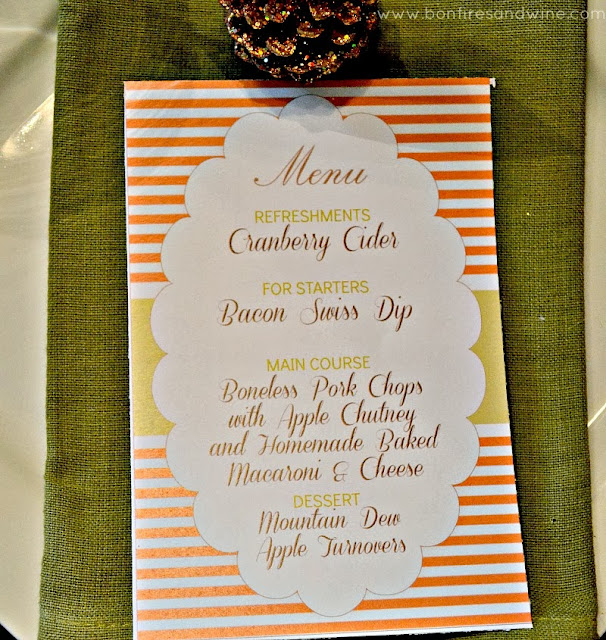 www.bonfiresandwine.com
Menu
REFRESHMENTS
Cranberry Cider
FOR STARTERS
Bacon Swiss Dip
MAIN COURSE
Boneless Pork Chops
with Apple Chutney
and Homemade Baked
Macaroni & Cheese
DESSERT
Mountain Dew
Apple Turnovers